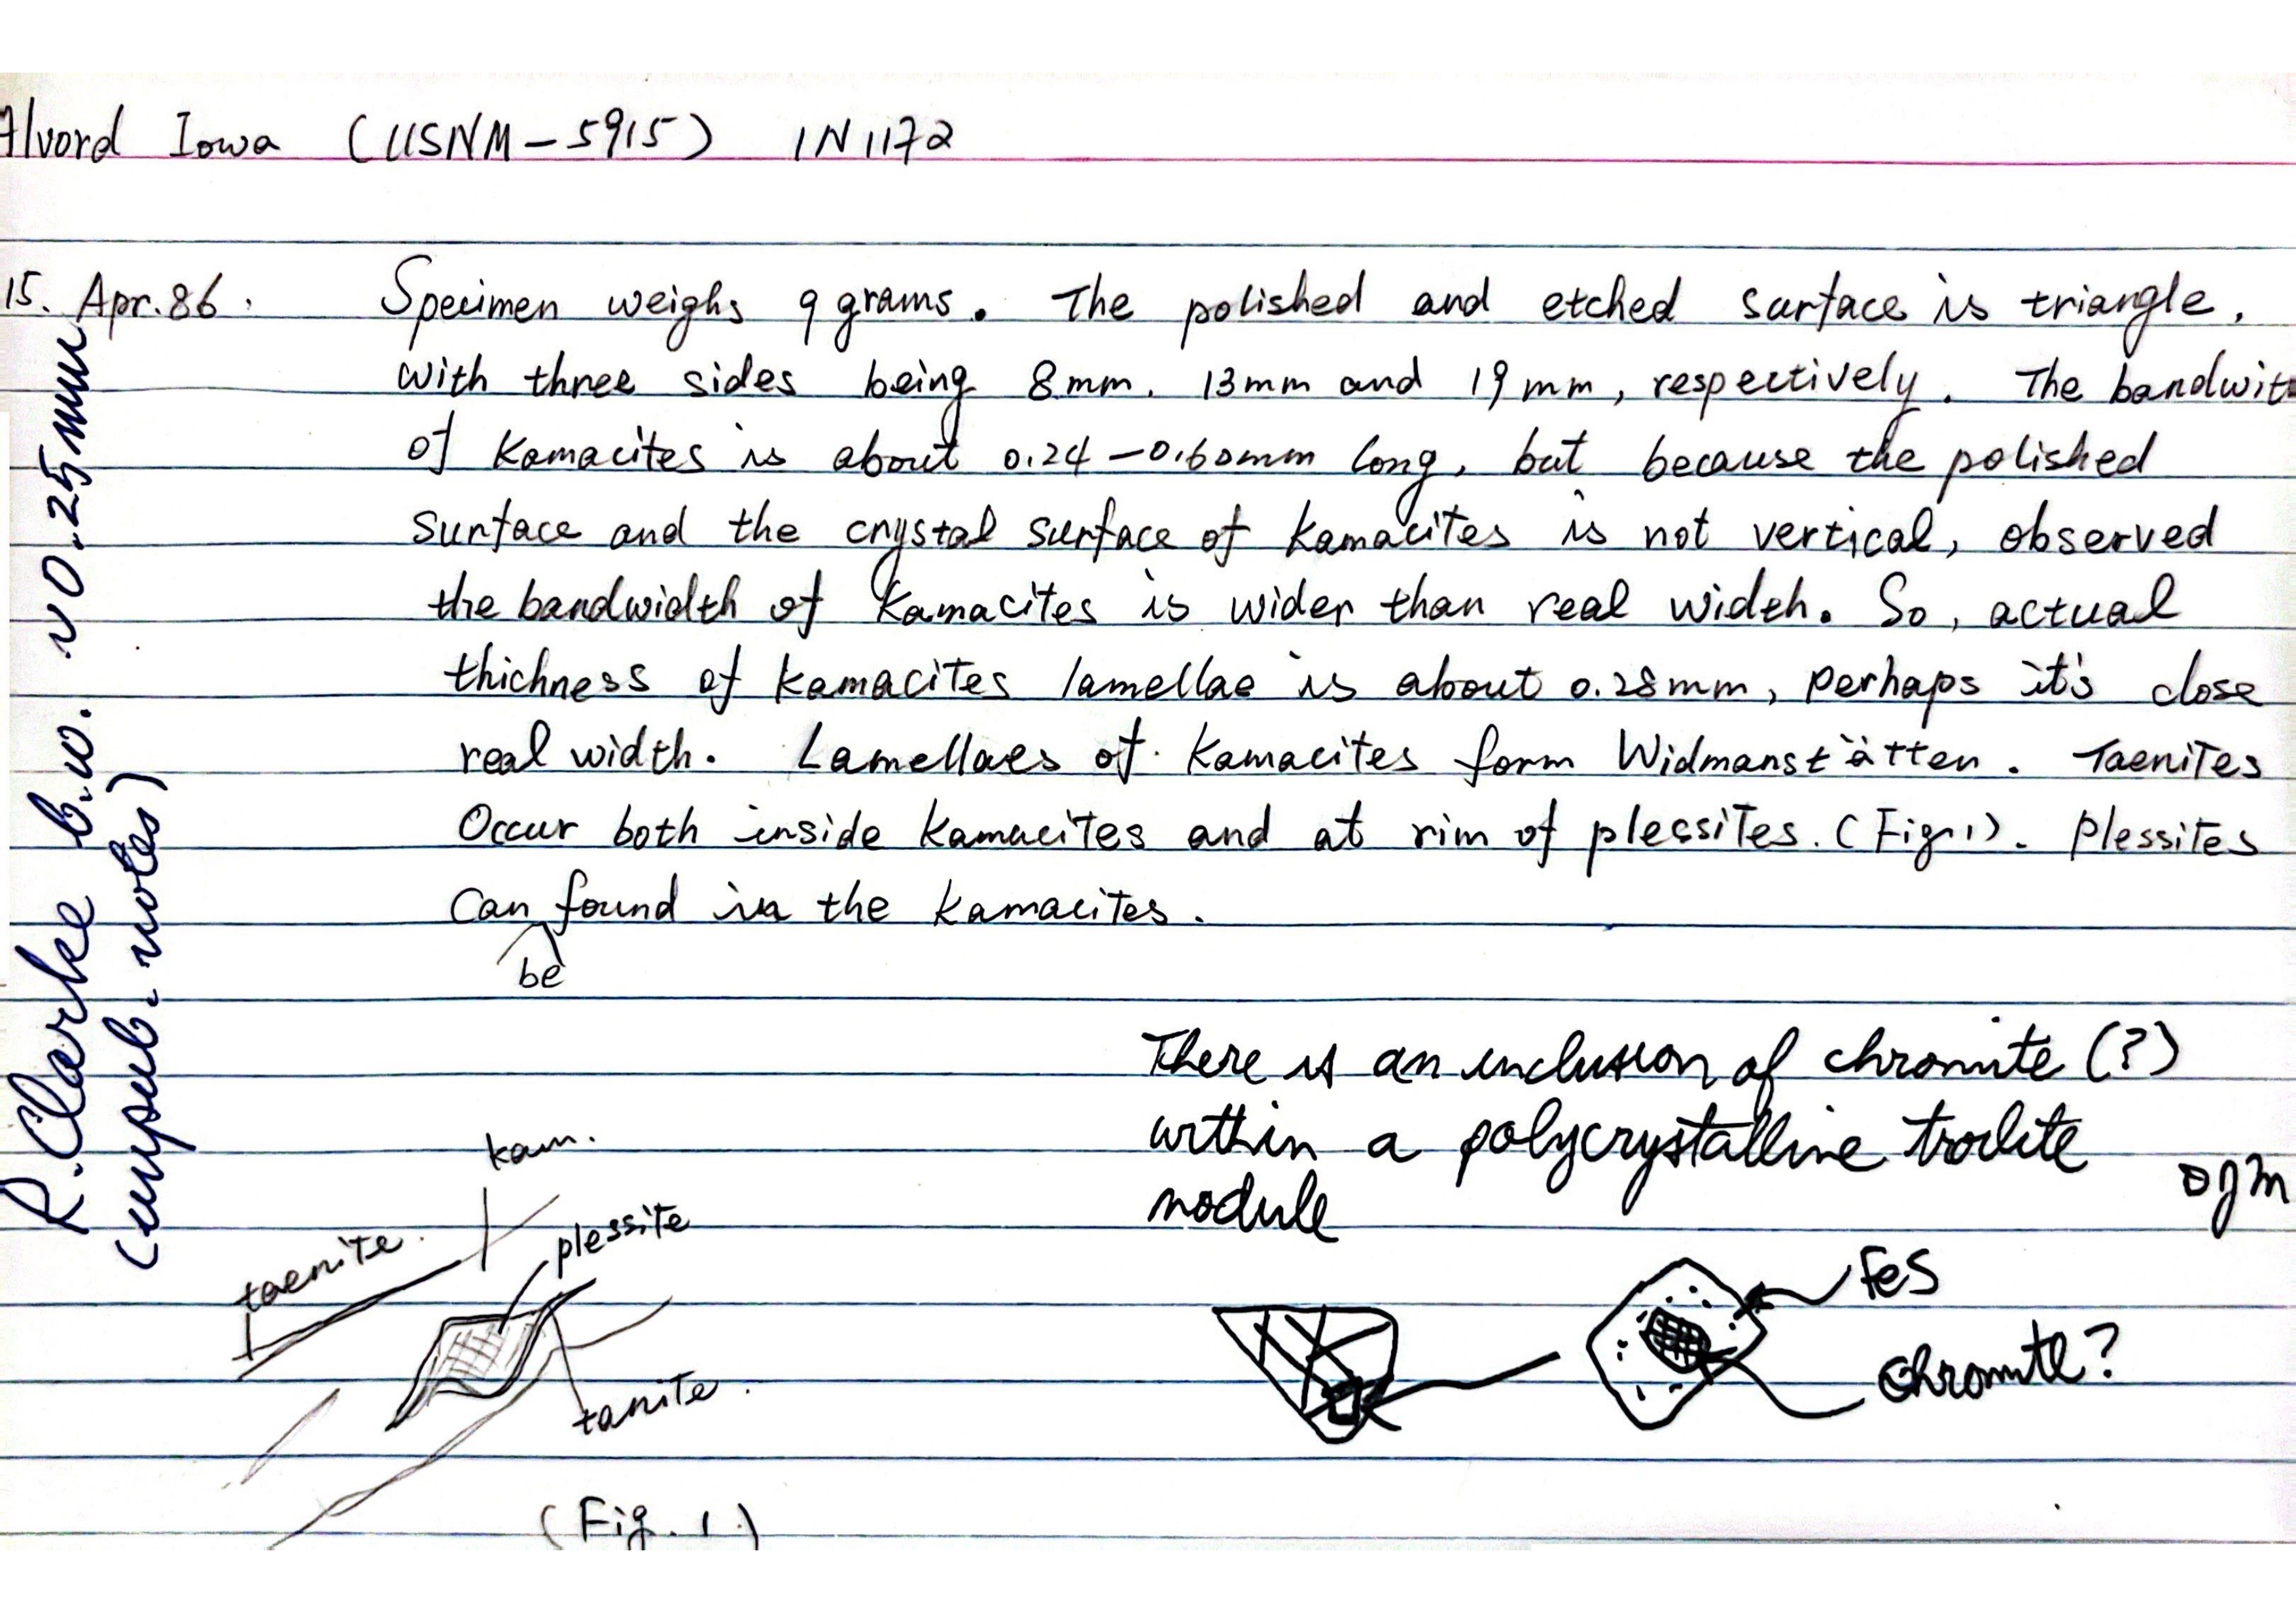 Alvord Iowa (USNM-5915) IN1172
15. Apr. 86. Specimen weighs 9 grams. The polished and etched surface is triangle,
with three sides being 8mm, 13mm and 19mm, respectively. The bandwit
of Kamacites is about 0.24-0.60mm long, but because the polished
surface and the crystal surface of Kamacites is not vertical, observed
the bandwidth of Kamacites is wider than real width. So, actual
thichness of kamacites lamellae is about 0.28mm, perhaps it's close
real width. Lamellaes of Kamacites form Widmanstätten. Taenites
Occur both inside kamacites and at rim of plessites. (Fig. 1). Plessites
can be found in the Kamacites.
R. Clarke b.w. ~0.25mm
(unpub. notes)
There is an inclusion of chromite (?)
within a polycrystalline troilite
nodule
kam.
taenite.
plessite
tanite.
(Fig. 1.)
FeS
Chromite?